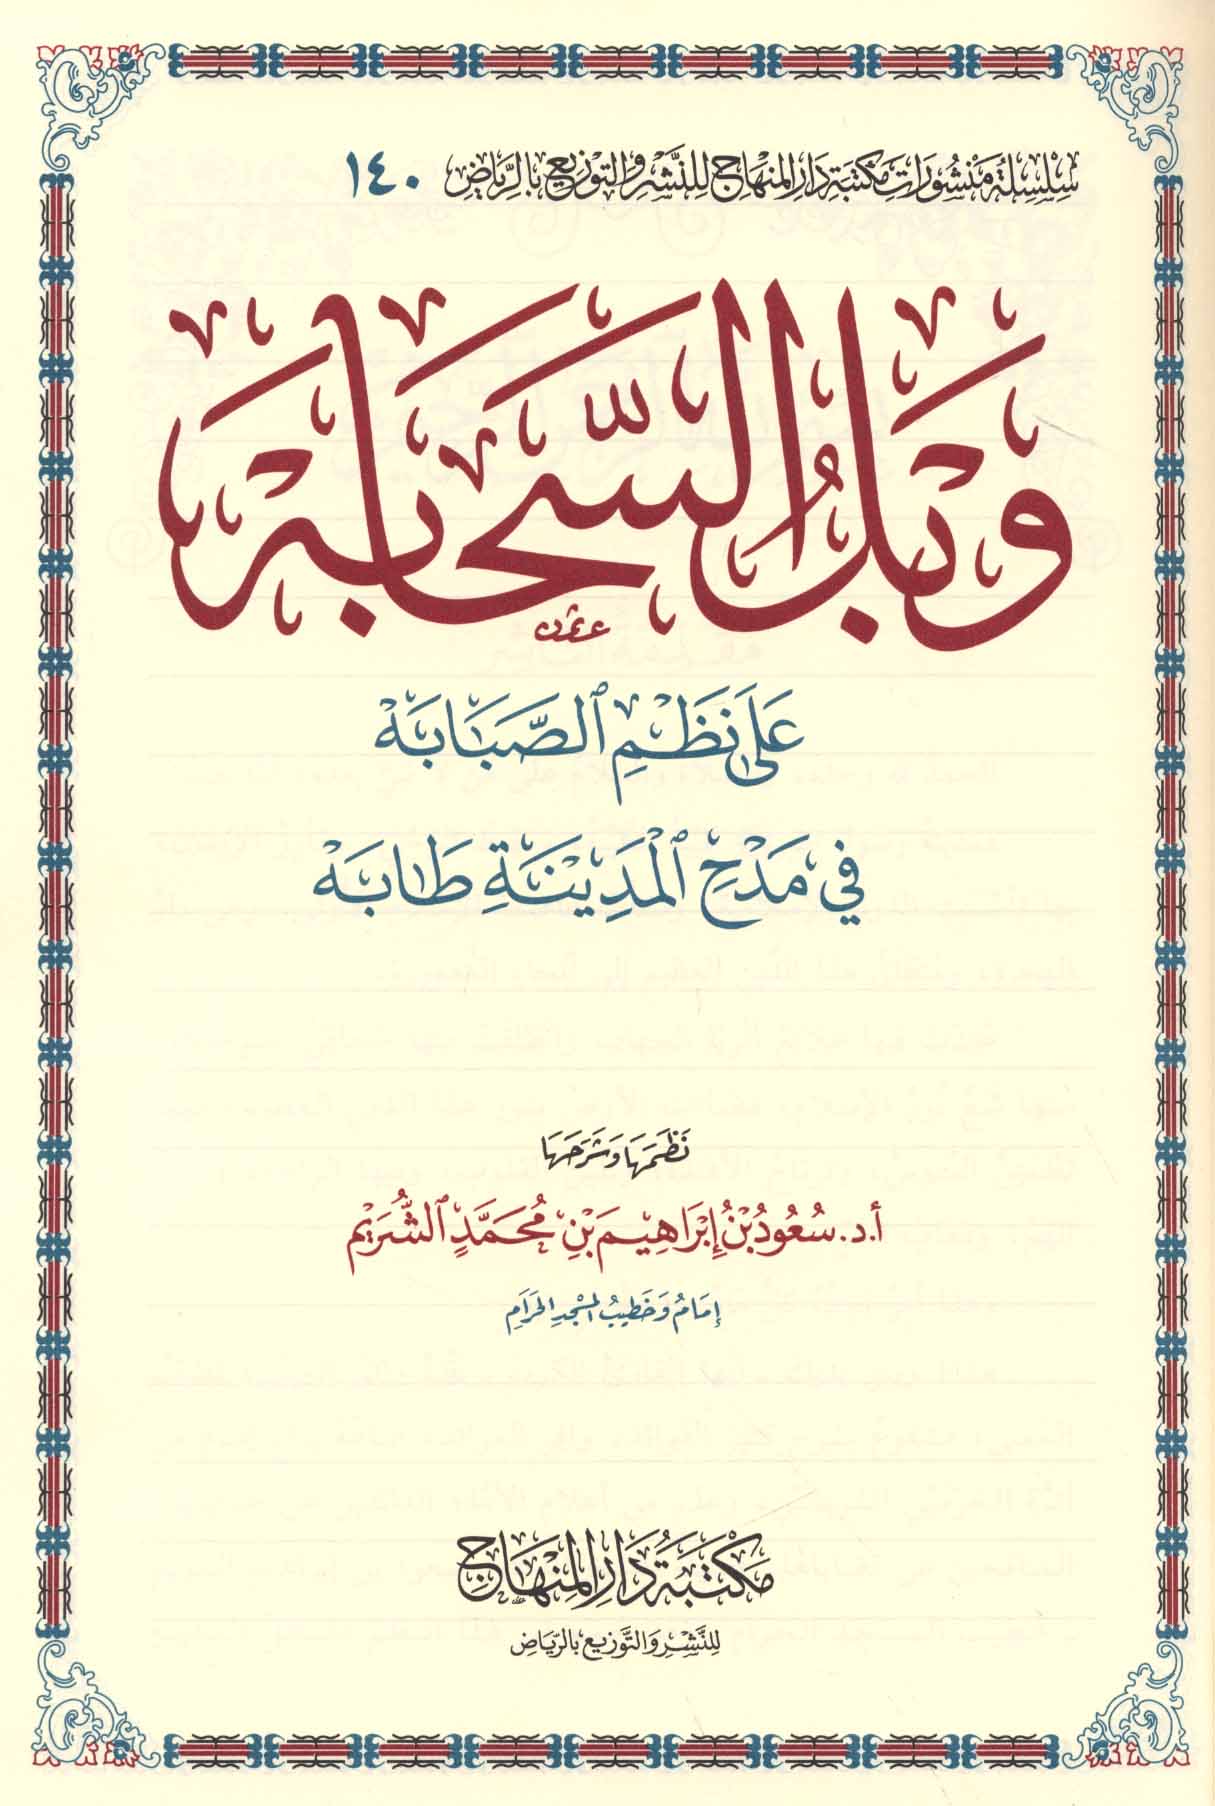 سِلْسِلَةُ مَنْشُورَاتِ مَكْتَبَةِ دَارِ المِنْهَاجِ لِلنَّشْرِ وَالتَّوْزِيعِ بِالرِّيَاضِ ١٤٠
وَبْلُ السَّحَابَهْ
عَلَى نَظْمِ ٱلصَّبَابَهْ
فِي مَدْحِ ٱلْمَدِينَةِ طَابَهْ
نَظَمَهَا وَشَرَحَهَا
أ.د. سُعُودُ بْنُ إِبْرَاهِيمَ بْنِ مُحَمَّدٍ ٱلشُّرَيْم
إِمَامُ وَخَطِيبُ المَسْجِدِ الحَرَامِ
مَكْتَبَةُ دَارِ المِنْهَاجِ
لِلنَّشْرِ وَالتَّوْزِيعِ بِالرِّيَاضِ